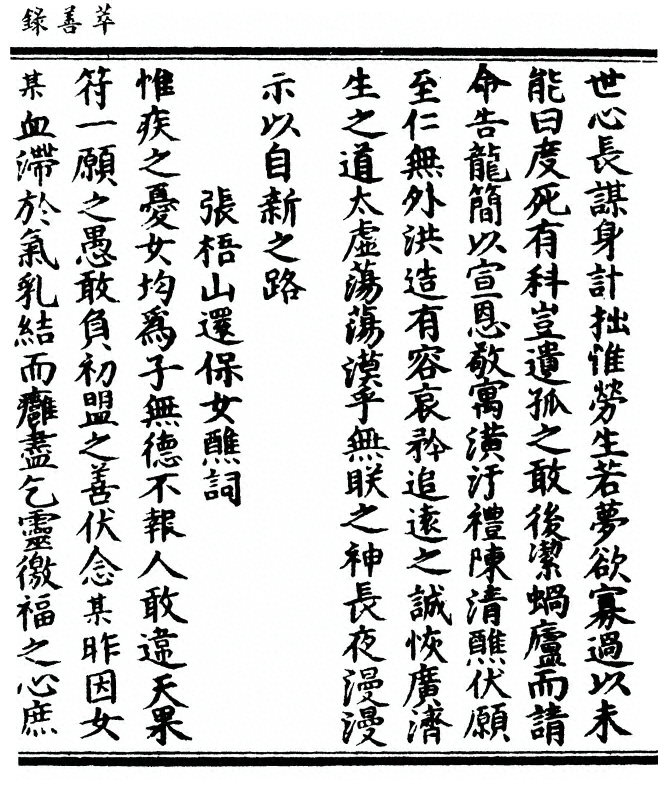 萃善録
世心長謀身計拙惟勞生若夢欲寡過以未
能曰度死有科豈遺孤之敢後潔蝸廬而請
命告龍簡以宣恩敬寓潢汙禮陳清醮伏願
至仁無外洪造有容哀矜追遠之誠恢廣濟
生之道太虛蕩蕩漠乎無朕之神長夜漫漫
示以自新之路
張梧山還保女醮詞
惟疾之憂女均爲子無德不報人敢違天果
符一願之愚敢負初盟之善伏念某昨因女
某血滯於氣乳結而癰盡乞靈徼福之心庶